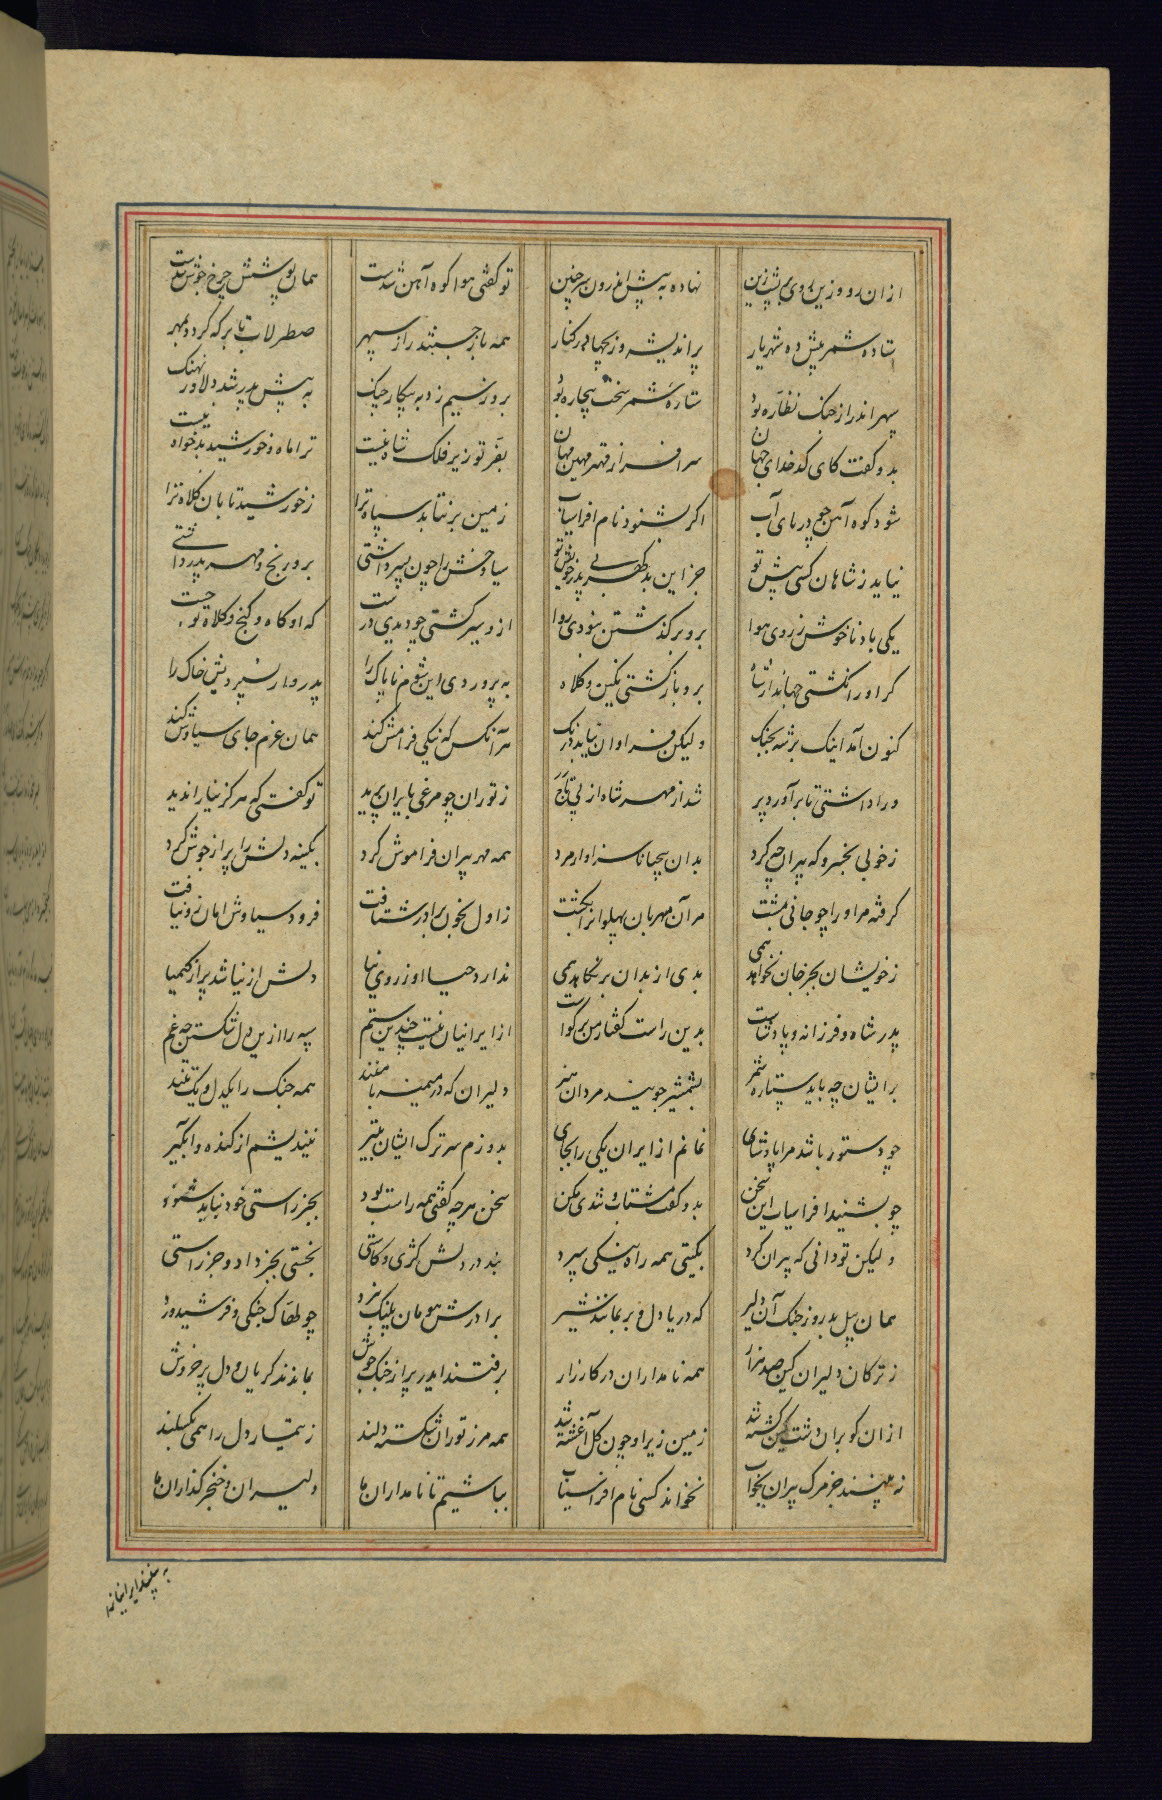 ازان رو وزین روی بر پشت زین نهاده به پیش اندرون سر چنین تو گفتی هوا کوه آهن شدست همان پوشش چرخ جوشن شدست
ستاده شمر پیش ده شهریار پر اندیشه و زیجها در کنار همه باز جستند راز سپهر صطرلاب تا بر که گردد بمهر
سپهر اندر از جنگ نظاره بود ستاره شمر سخت بیچاره بود بروز سیم زد به پیکار چنگ به پیش پدر شد دلاور نهنگ
بدو گفت کای کدخدای جهان سرافراز و مهتر مهین مهان بفر تو زیر فلک شاه نیست ترا ماه و خورشید بدخواه نیست
شود کوه آهن چو دریای آب اگر بشنود نام افراسیاب زمین بر نتابد سپاه ترا ز خورشید تابان کلاه ترا
نیاید ز شاهان کسی پیش تو جز این بد گهر بی پدر خویش تو سیاوخش را چون پسر داشتی برو رنج و مهر پدر داشتی
یکی باد ناخوش ز روی هوا برو بر گذشتن نبودی روا ازو سیر گشتی چو دیدی درست که او گاه و گنج و کلاه تو جست
گر او را نکشتی جهاندار شاه برو باز گشتی نگین و کلاه به پروردی این شوم ناپاک را پدروار نسپردیش خاک را
کنون آمد اینک بر شه بجنگ ولیکن فراوان نیاید درنگ هر آنکس که نیکی فرامش کند همان عزم جای سیاوش کند
ورا داشتی تا برآورد پر شد از مهر شاه از پی تاج زر ز توران چو مرغی بایران پرید تو گفتی که هرگز نیا را ندید
ز خوبی بخسرو که پیران چه کرد بدان بیچا ناسزاوار مرد همه مهر پیران فراموش کرد بکینه دلش را پر از جوش کرد
گرفته مر او را چو جانی بمشت مر آن مهربان پهلوان را بکشت ز اول بخون برادر شتافت فرود سیاوش امان زو نیافت
ز خویشان بجز جان نخواهد همی بدی از بدان بر نکاهد همی ندارد حیا او ز روی نیا دلش از نیا شد پر از کیمیا
پدر شاه و فرزانه و پادشاست بدین راست گفتار من بر گواست از ایرانیان نیست چندین ستم سپه را ازین دل شکستن چه غم
برایشان چه باید ستاره شمر بشمشیر جویند مردان هنر دلیران که در میمنه با منند همه جنگ را یکدل و یک تنند
چو دستور باشد مرا پادشای نمانم از ایران یکی را بجای بدوزم سر ترک ایشان بتیر نیندیشم از کنده و آبگیر
چو بشنید افراسیاب این سخن بدو گفت مشتاب و تندی مکن سخن هر چه گفتی همه راست بود بجز راستی خود نباید شنود
ولیکن تو دانی که پیران گرد بگیتی همه راه نیکی سپرد نبد در دلش کژی و کاستی نجستی بجز داد و جز راستی
همان پیل بد روز جنگ آن دلیر که دریا دل و بر بمانند شیر برادرش هومان پلنگ نبرد چو لهاک جنگی و فرشیدورد
ز ترکان دلیران کین صد هزار همه نامداران در کارزار برفتند ایدر پر از جنگ جوش بماندند گریان و دل پر خروش
ازان کو بران دشت کین کشته شد زمین زیر او چون گل آغشته شد همه مرز توران شکسته دلند ز تیمار دل را همی بگسلند
نه بینند جز مرگ پیران بخواب نخواند کسی نام افراسیاب بباشیم تا نامداران ما دلیران و خنجر گذاران ما
به بینند ایرانیان را